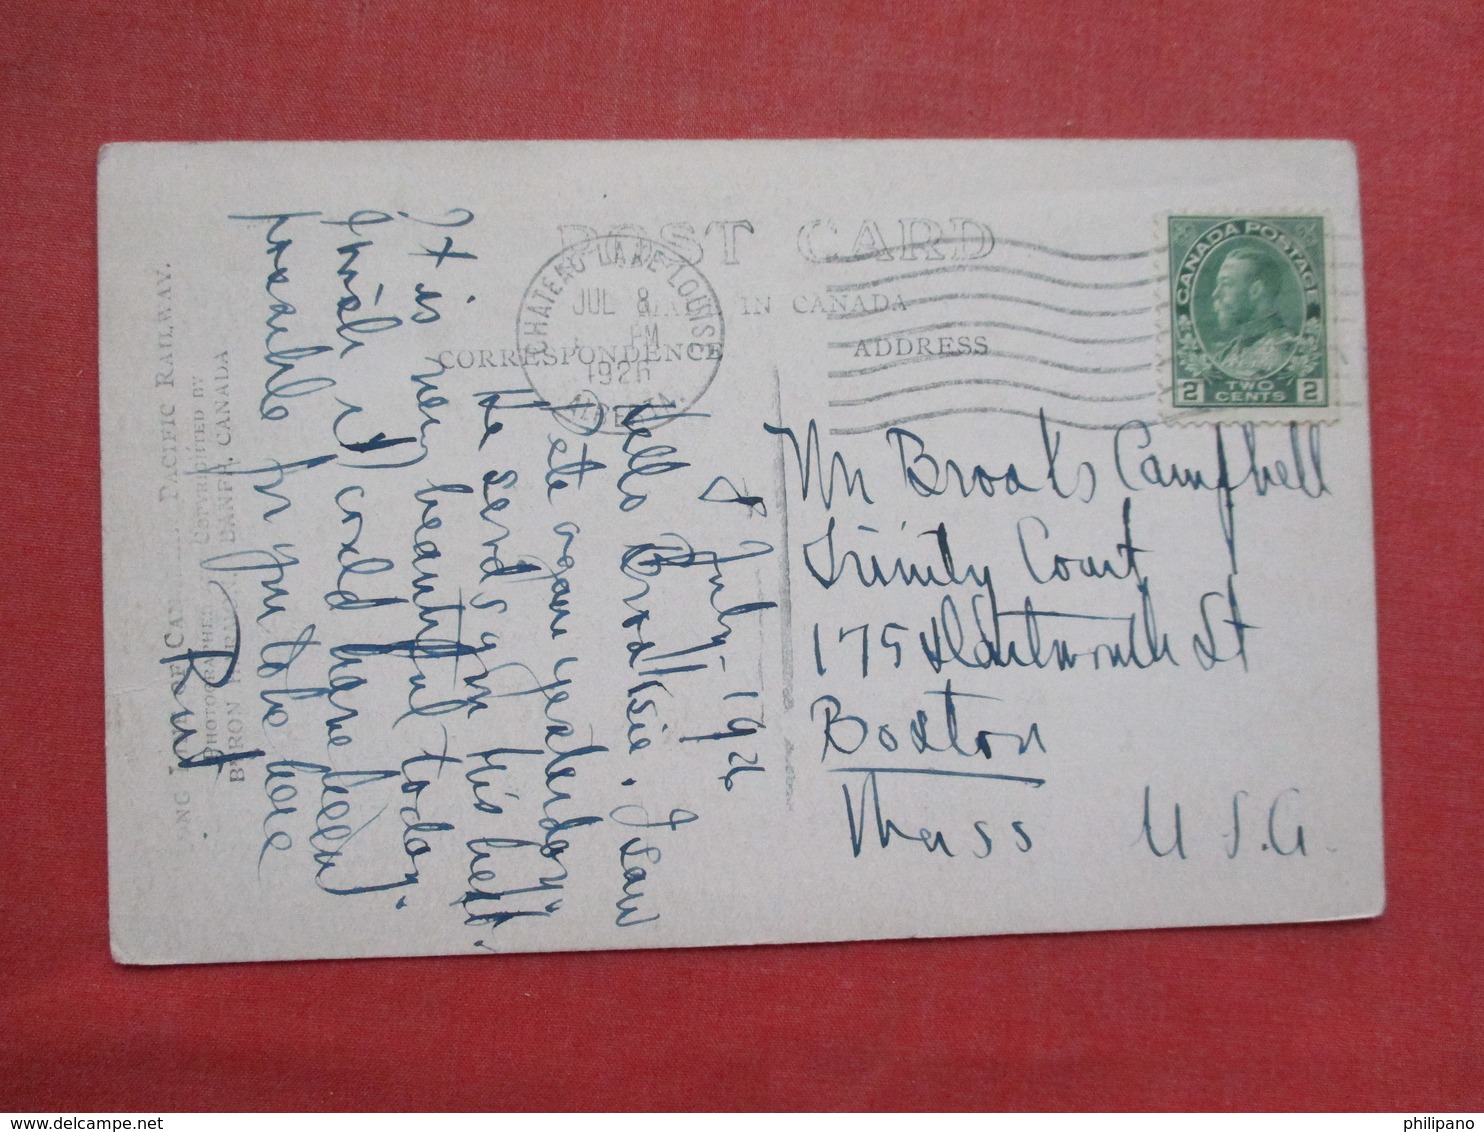 POST CARD
MADE IN CANADA
CORRESPONDENCE
ADDRESS
CHATEAU LAKE LOUISE
JUL 8
PM
1926
ALBERTA.
CANADA POSTAGE
2 TWO CENTS 2
8 July - 1926
Hello Brooksie. I saw
Pete again yesterday.
He sends you his best.
It is very beautiful today.
I wish it could have been
possible for you to be here
Mr Brooks Campbell
Trinity Court
175 Dartmouth St
Boston
Mass U.S.A.
PACIFIC RAILWAY.
PHOTOGRAPHED COPYRIGHTED BY
BYRON HARMON, BANFF, CANADA
philipano
delcampe.net